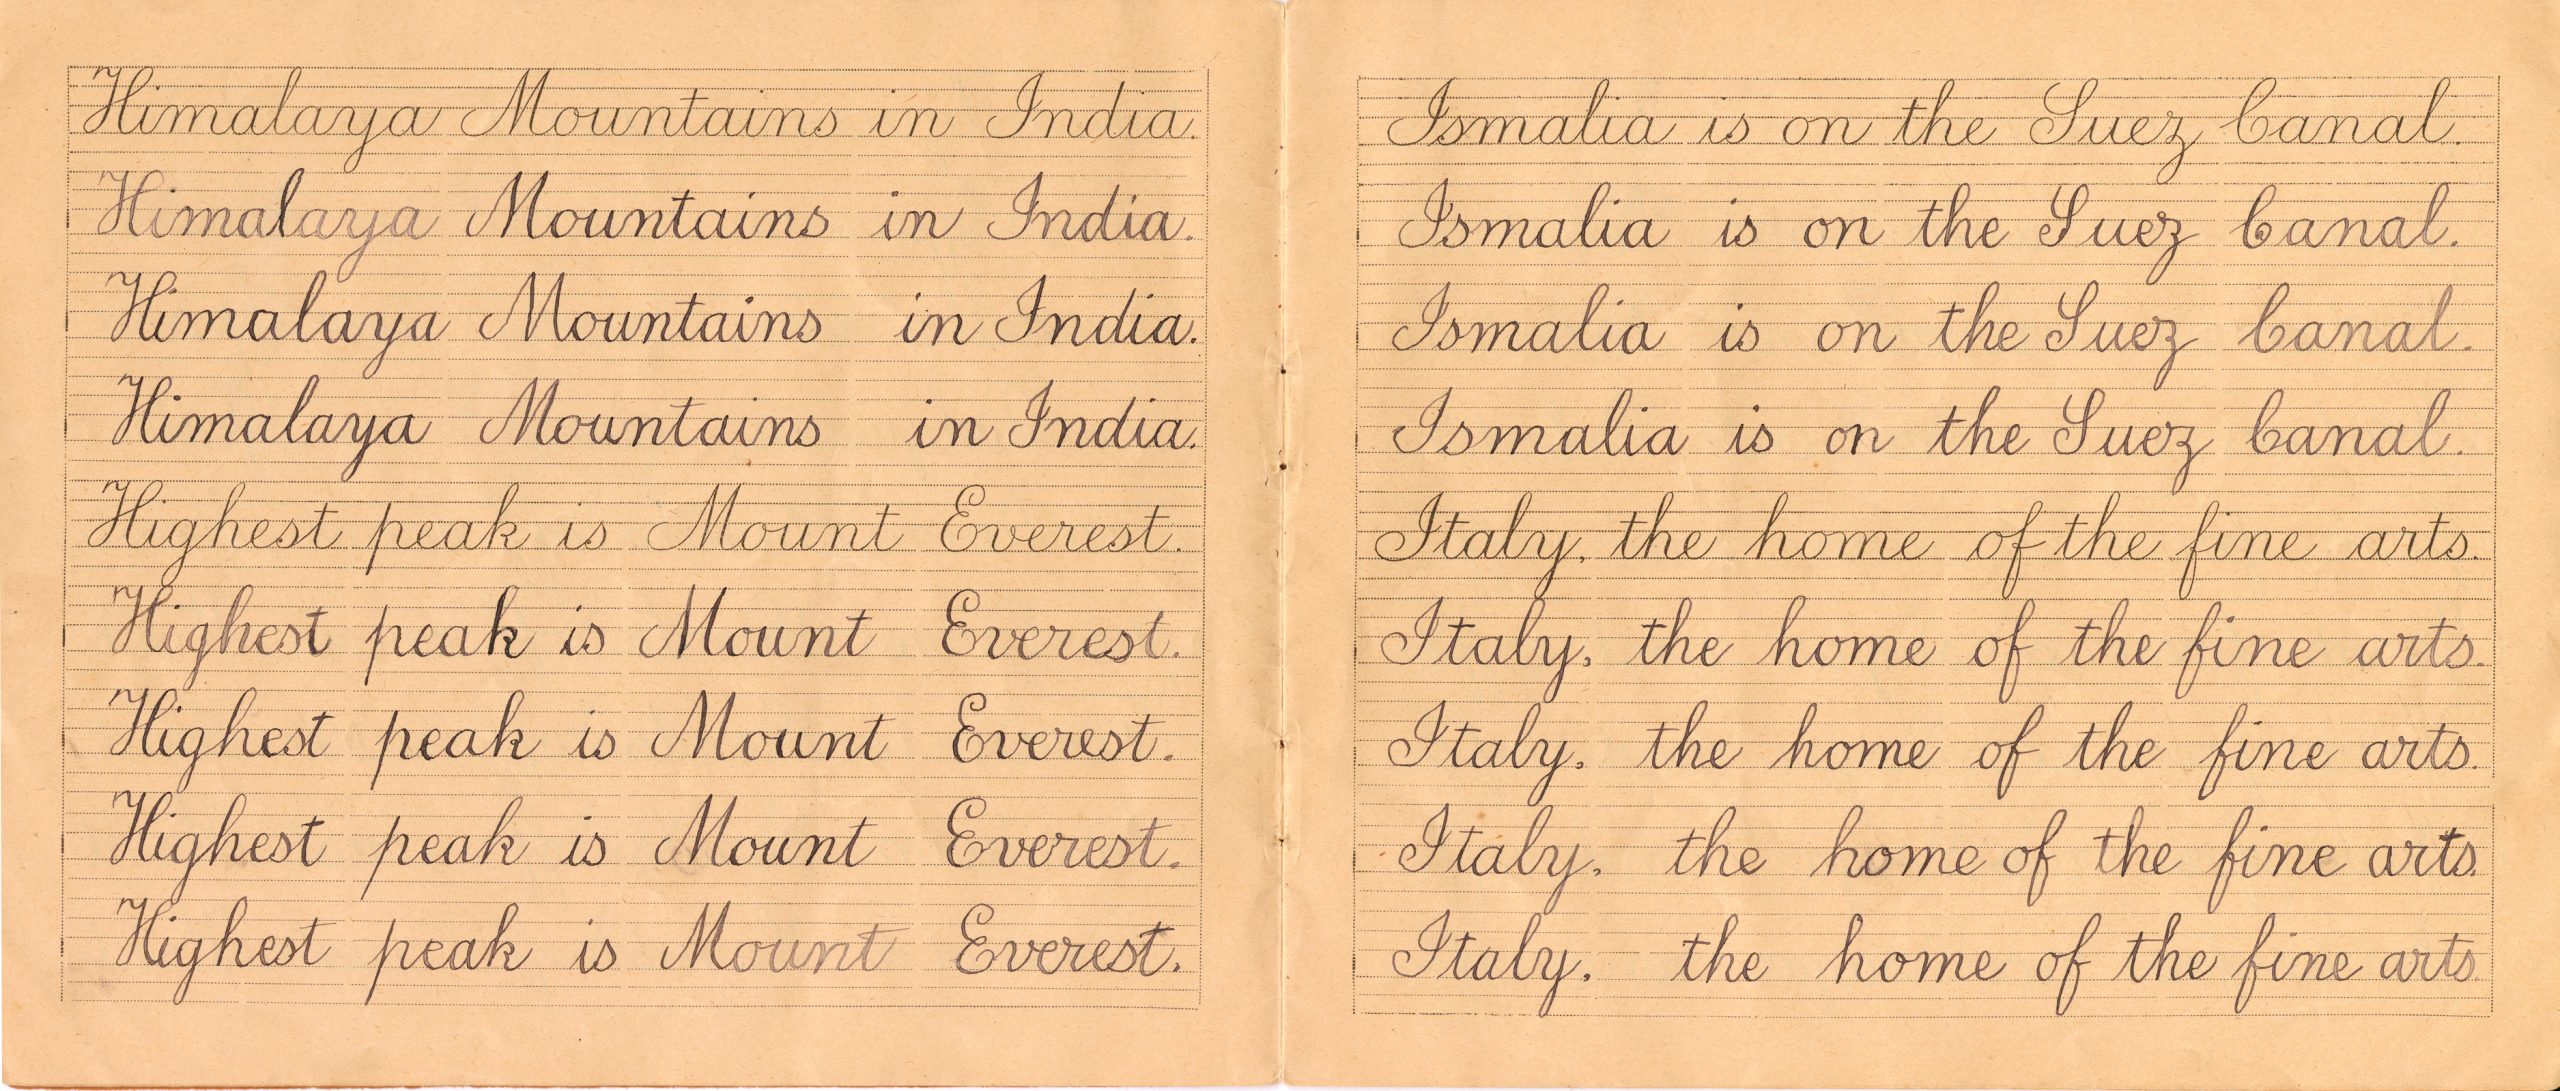 Himalaya Mountains in India.
Himalaya Mountains in India.
Himalaya Mountains in India.
Himalaya Mountains in India.
Highest peak is Mount Everest.
Highest peak is Mount Everest.
Highest peak is Mount Everest.
Highest peak is Mount Everest.
Highest peak is Mount Everest.
Ismalia is on the Suez Canal.
Ismalia is on the Suez Canal.
Ismalia is on the Suez Canal.
Ismalia is on the Suez Canal.
Italy, the home of the fine arts.
Italy, the home of the fine arts.
Italy, the home of the fine arts.
Italy, the home of the fine arts.
Italy, the home of the fine arts.